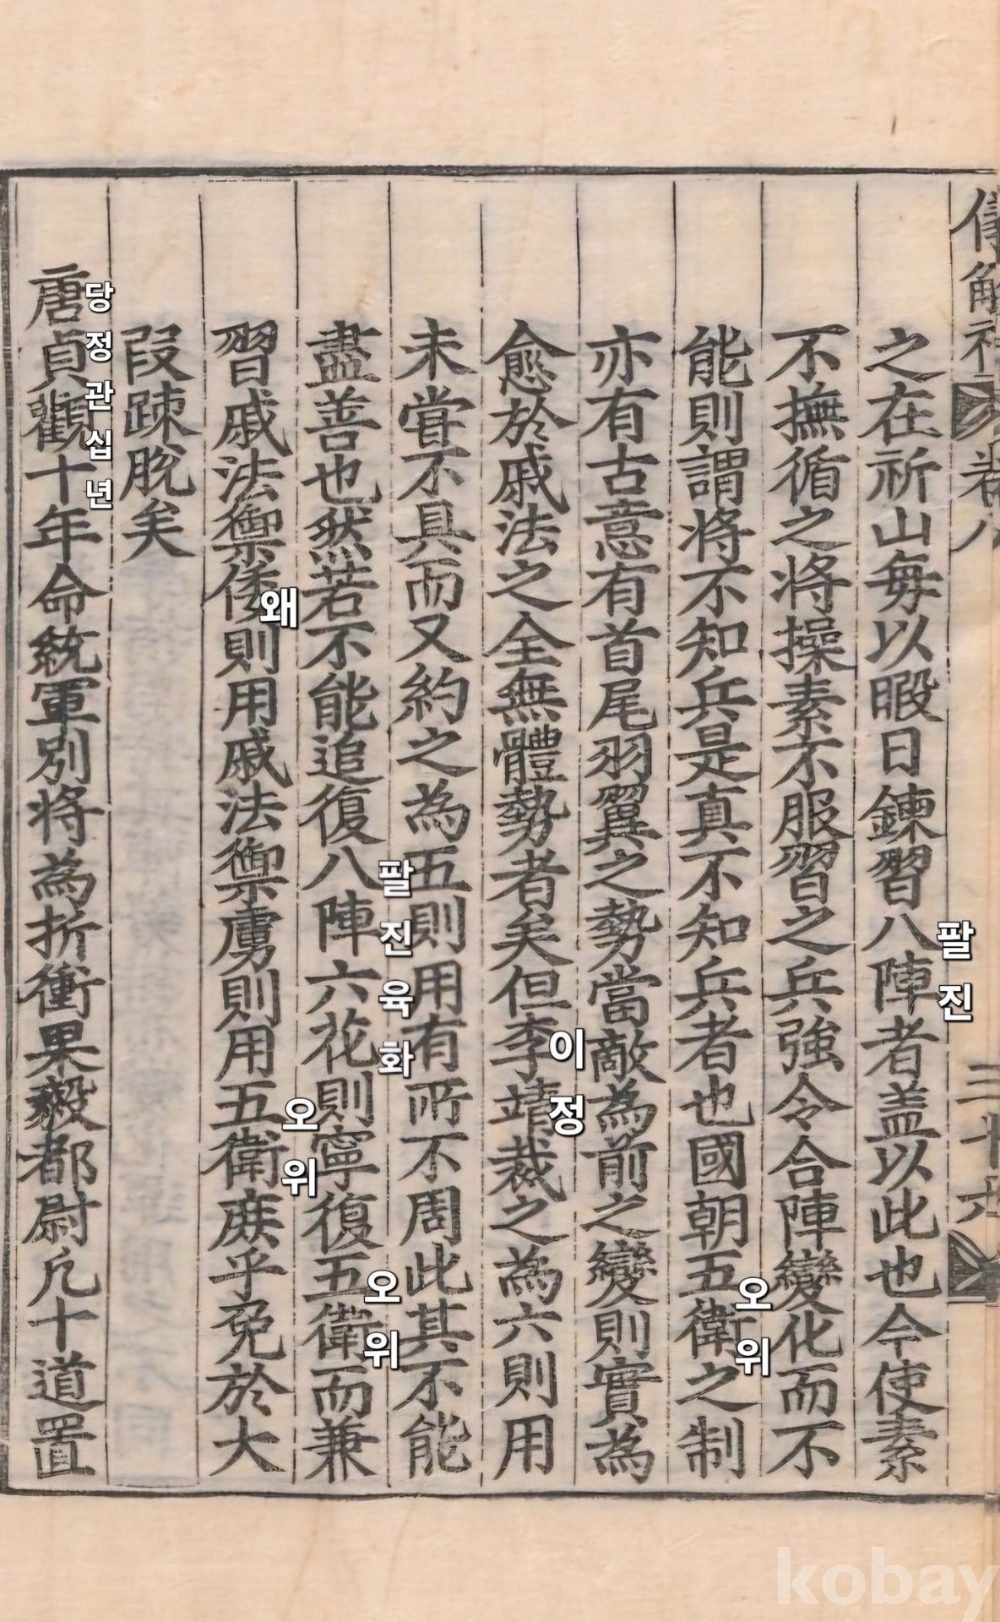 之在祈山每以暇日鍊習八陣者盖以此也今使素
不撫循之將操素不服習之兵強令合陣變化而不
能則謂將不知兵是真不知兵者也國朝五衛之制
亦有古意有首尾羽翼之勢當敵為前之變則實為
愈於戚法之全無體勢者矣但李靖裁之為六則用
未嘗不具而又約之為五則用有所不周此其不能
盡善也然若不能追復八陣六花則寧復五衛而兼
習戚法禦倭則用戚法禦虜則用五衛庶乎免於大
段踈脫矣
唐貞觀十年命統軍別將為折衝果毅都尉凡十道置
卷八
三十六
팔진
오위
이정
팔진육화
오위
왜
오위
당정관십년
kobay